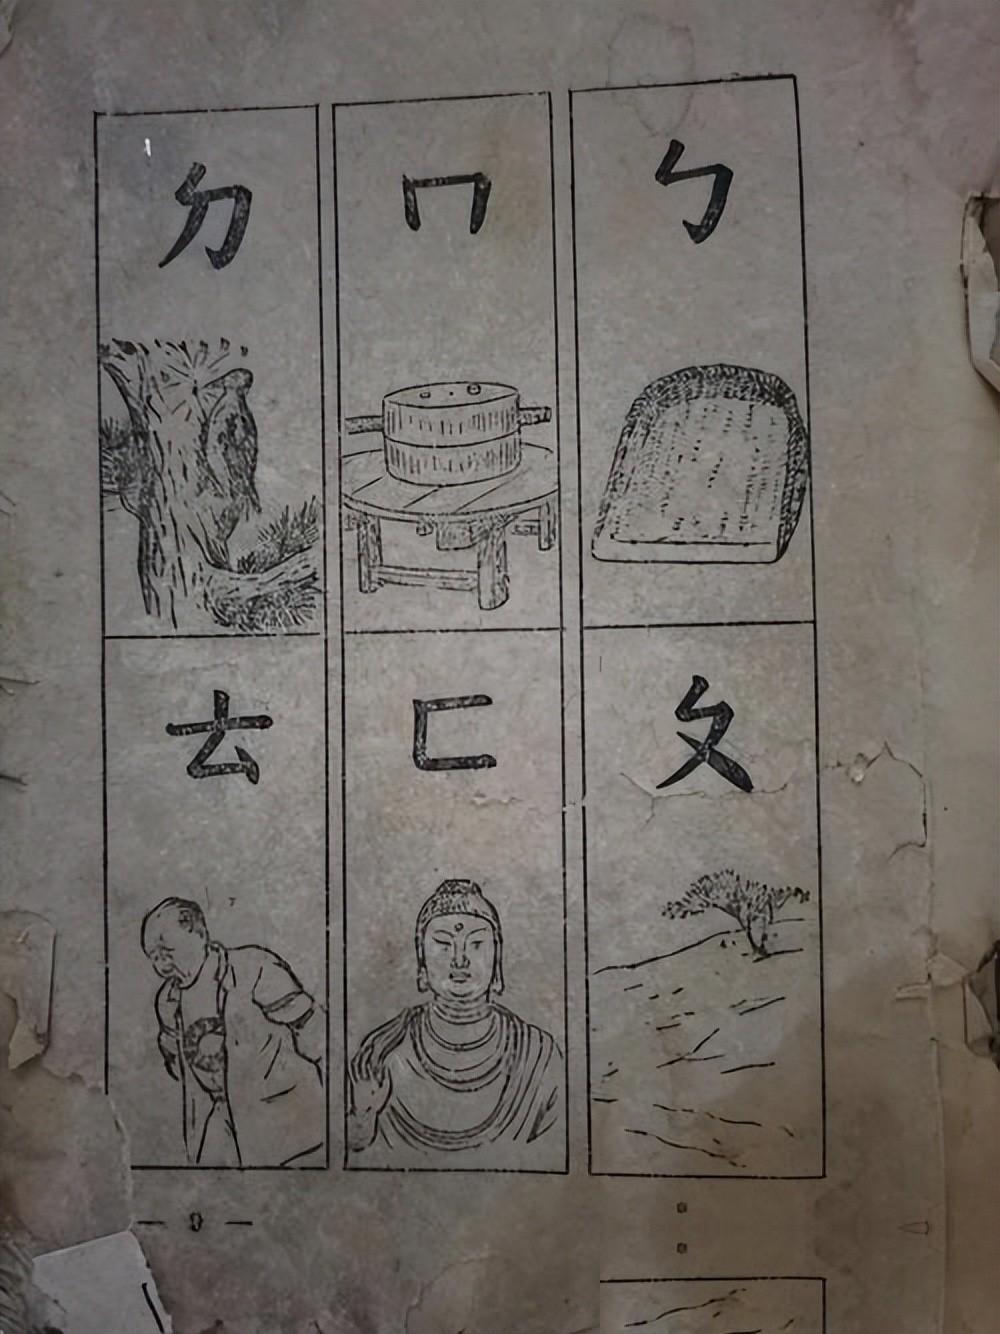 ㄅ
ㄆ
ㄇ
ㄈ
ㄉ
ㄊ